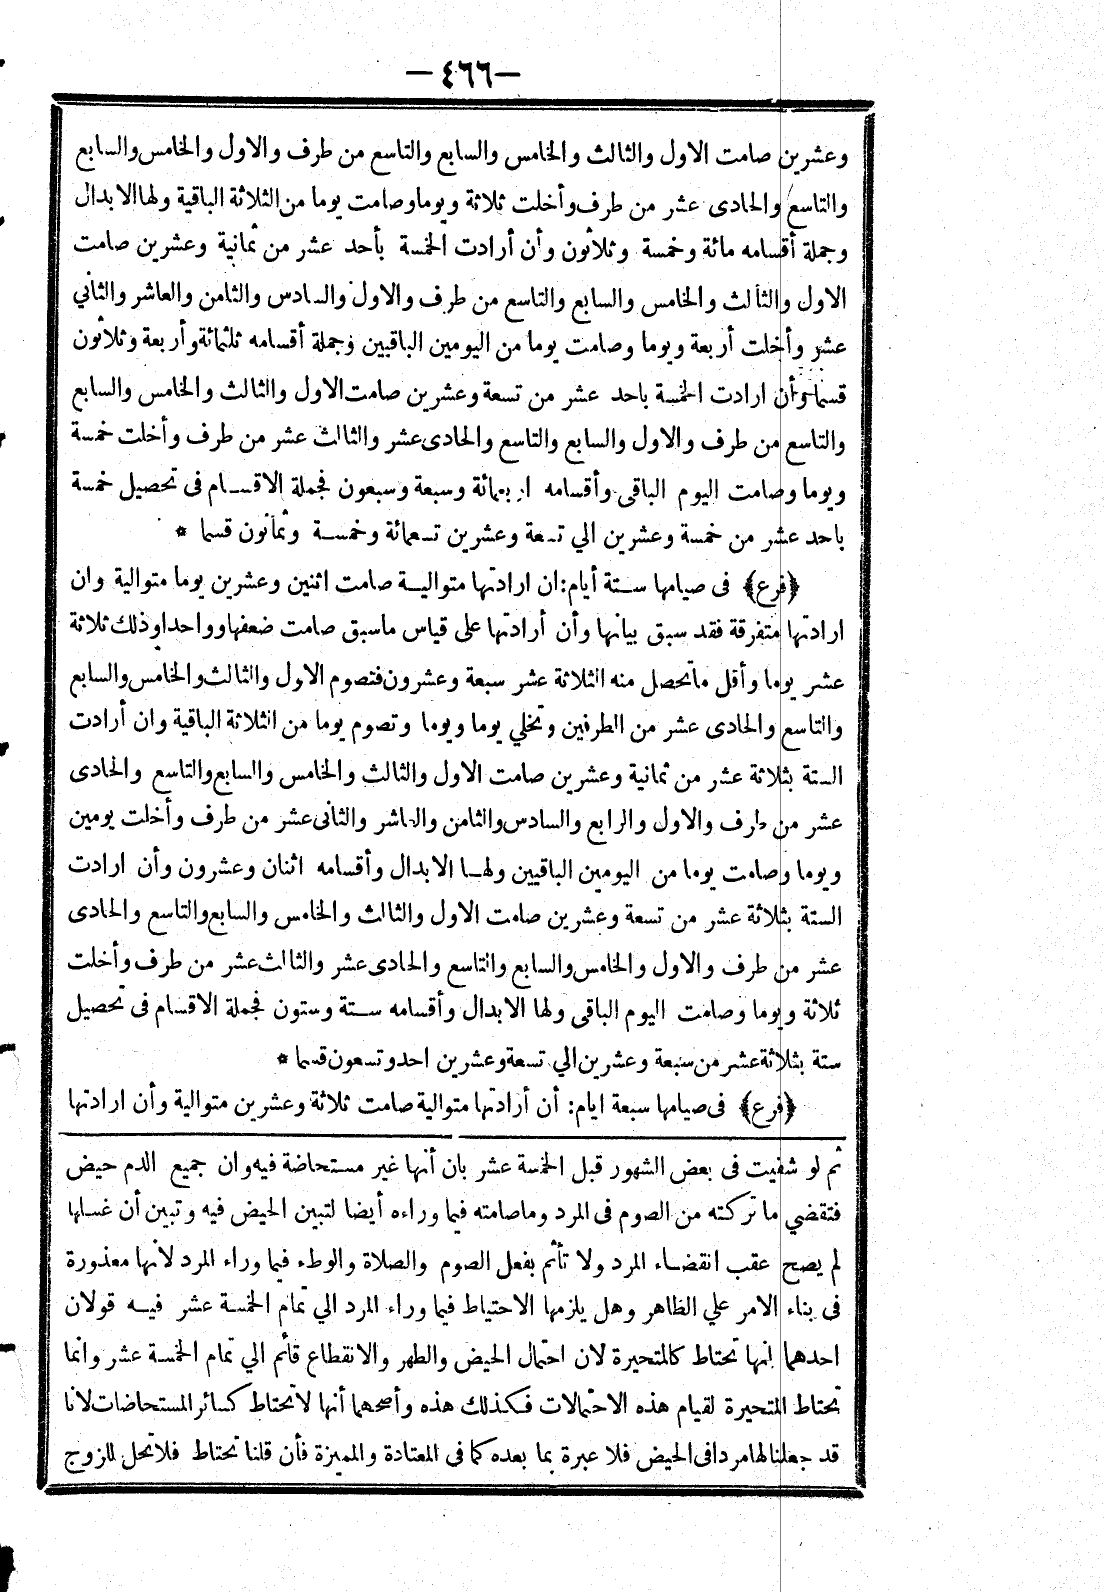 —٤٦٦—
وعشرين صامت الاول والثالث والخامس والسابع والتاسع من طرف والاول والخامس والسابع
والتاسع والحادى عشر من طرف وأخلت ثلاثة ويوما وصامت يوما من الثلاثة الباقية ولها الابدال
وجملة أقسامه مائة وخمسة وثلاثون وأن أرادت الخمسة بأحد عشر من ثمانية وعشرين صامت
الاول والثالث والخامس والسابع والتاسع من طرف والاول والسادس والثامن والعاشر والثاني
عشر وأخلت أربعة ويوما وصامت يوما من اليومين الباقيين وجملة أقسامه ثلثمائة وأربعة وثلاثون
قسما وأن ارادت الخمسة باحد عشر من تسعة وعشرين صامت الاول والثالث والخامس والسابع
والتاسع من طرف والاول والسابع والتاسع والحادى عشر والثالث عشر من طرف وأخلت خمسة
ويوما وصامت اليوم الباقى وأقسامه اربعمائة وسبعة وسبعون فجملة الاقسام فى تحصيل خمسة
باحد عشر من خمسة وعشرين الي تسعة وعشرين تسعمائة وخمسة وثمانون قسما *
﴿فرع﴾ فى صيامها ستة أيام: ان ارادتها متوالية صامت اثنين وعشرين يوما متوالية وان
ارادتها متفرقة فقد سبق بيانها وأن أرادتها على قياس ماسبق صامت ضعفها وواحدا وذلك ثلاثة
عشر يوما وأقل ما تحصل منه الثلاثة عشر سبعة وعشرون فتصوم الاول والثالث والخامس والسابع
والتاسع والحادى عشر من الطرفين وتخلي يوما ويوما وتصوم يوما من الثلاثة الباقية وان أرادت
الستة بثلاثة عشر من ثمانية وعشرين صامت الاول والثالث والخامس والسابع والتاسع والحادى
عشر من طرف والاول والرابع والسادس والثامن والعاشر والثانى عشر من طرف وأخلت يومين
ويوما وصامت يوما من اليومين الباقيين ولها الابدال وأقسامه اثنان وعشرون وأن ارادت
الستة بثلاثة عشر من تسعة وعشرين صامت الاول والثالث والخامس والسابع والتاسع والحادى
عشر من طرف والاول والخامس والسابع والتاسع والحادى عشر والثالث عشر من طرف وأخلت
ثلاثة ويوما وصامت اليوم الباقى ولها الابدال وأقسامه ستة وستون فجملة الاقسام فى تحصيل
ستة بثلاثة عشر من سبعة وعشرين الي تسعة وعشرين احد وتسعون قسما *
﴿فرع﴾ فى صيامها سبعة ايام: أن أرادتها متوالية صامت ثلاثة وعشرين متوالية وأن ارادتها
ثم لو شفيت فى بعض الشهور قبل الخمسة عشر بان أنها غير مستحاضة فيه وان جميع الدم حيض
فتقضي ما تركته من الصوم فى المرد وماصامته فيما وراءه أيضا لتبين الحيض فيه وتبين أن غسلها
لم يصح عقب انقضاء المرد ولا تأثم بفعل الصوم والصلاة والوطء فيما وراء المرد لانها معذورة
فى بناء الامر علي الظاهر وهل يلزمها الاحتياط فيما وراء المرد الي تمام الخمسة عشر فيه قولان
احدهما انها تحتاط كالمتحيرة لان احتمال الحيض والطهر والانقطاع قائم الي تمام الخمسة عشر وانما
تحتاط المتحيرة لقيام هذه الاحتمالات فكذلك هذه وأصحهما أنها لا تحتاط كسائر المستحاضات لانا
قد جعلنالها مردا فى الحيض فلا عبرة بما بعده كما فى المعتادة والمميزة فأن قلنا تحتاط فلا تحل للزوج